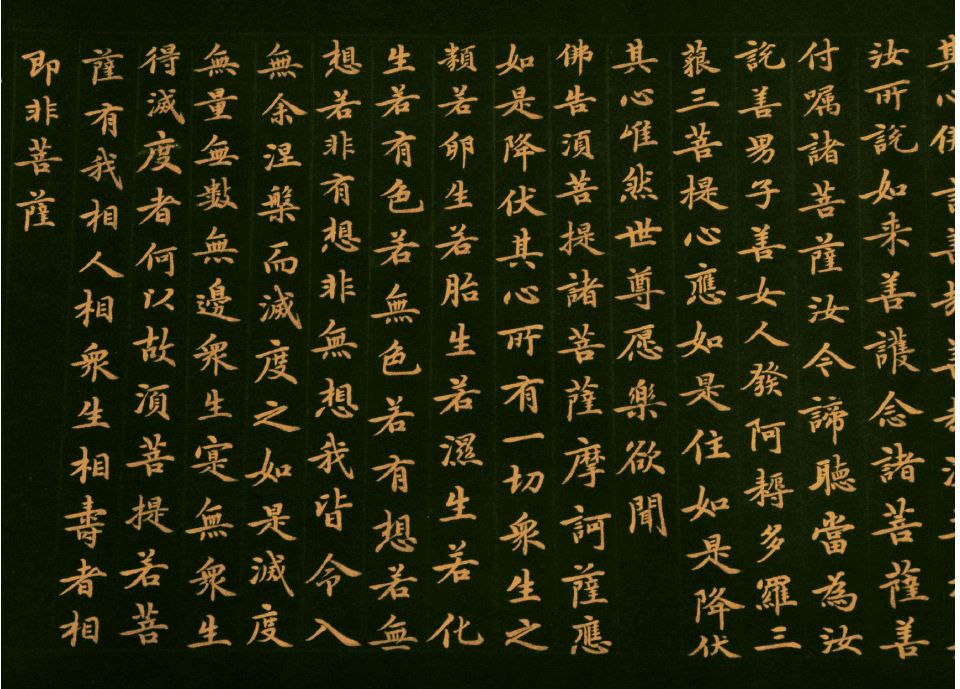 其心佛言善哉善哉
汝所說如来善護念諸菩薩善
付嘱諸菩薩汝今諦聽當為汝
說善男子善女人發阿耨多羅三
藐三菩提心應如是住如是降伏
其心唯然世尊愿樂欲聞
佛告須菩提諸菩薩摩訶薩應
如是降伏其心所有一切衆生之
類若卵生若胎生若濕生若化
生若有色若無色若有想若無
想若非有想非無想我皆令入
無余涅槃而滅度之如是滅度
無量無數無邊衆生寔無衆生
得滅度者何以故須菩提若菩
薩有我相人相衆生相壽者相
即非菩薩